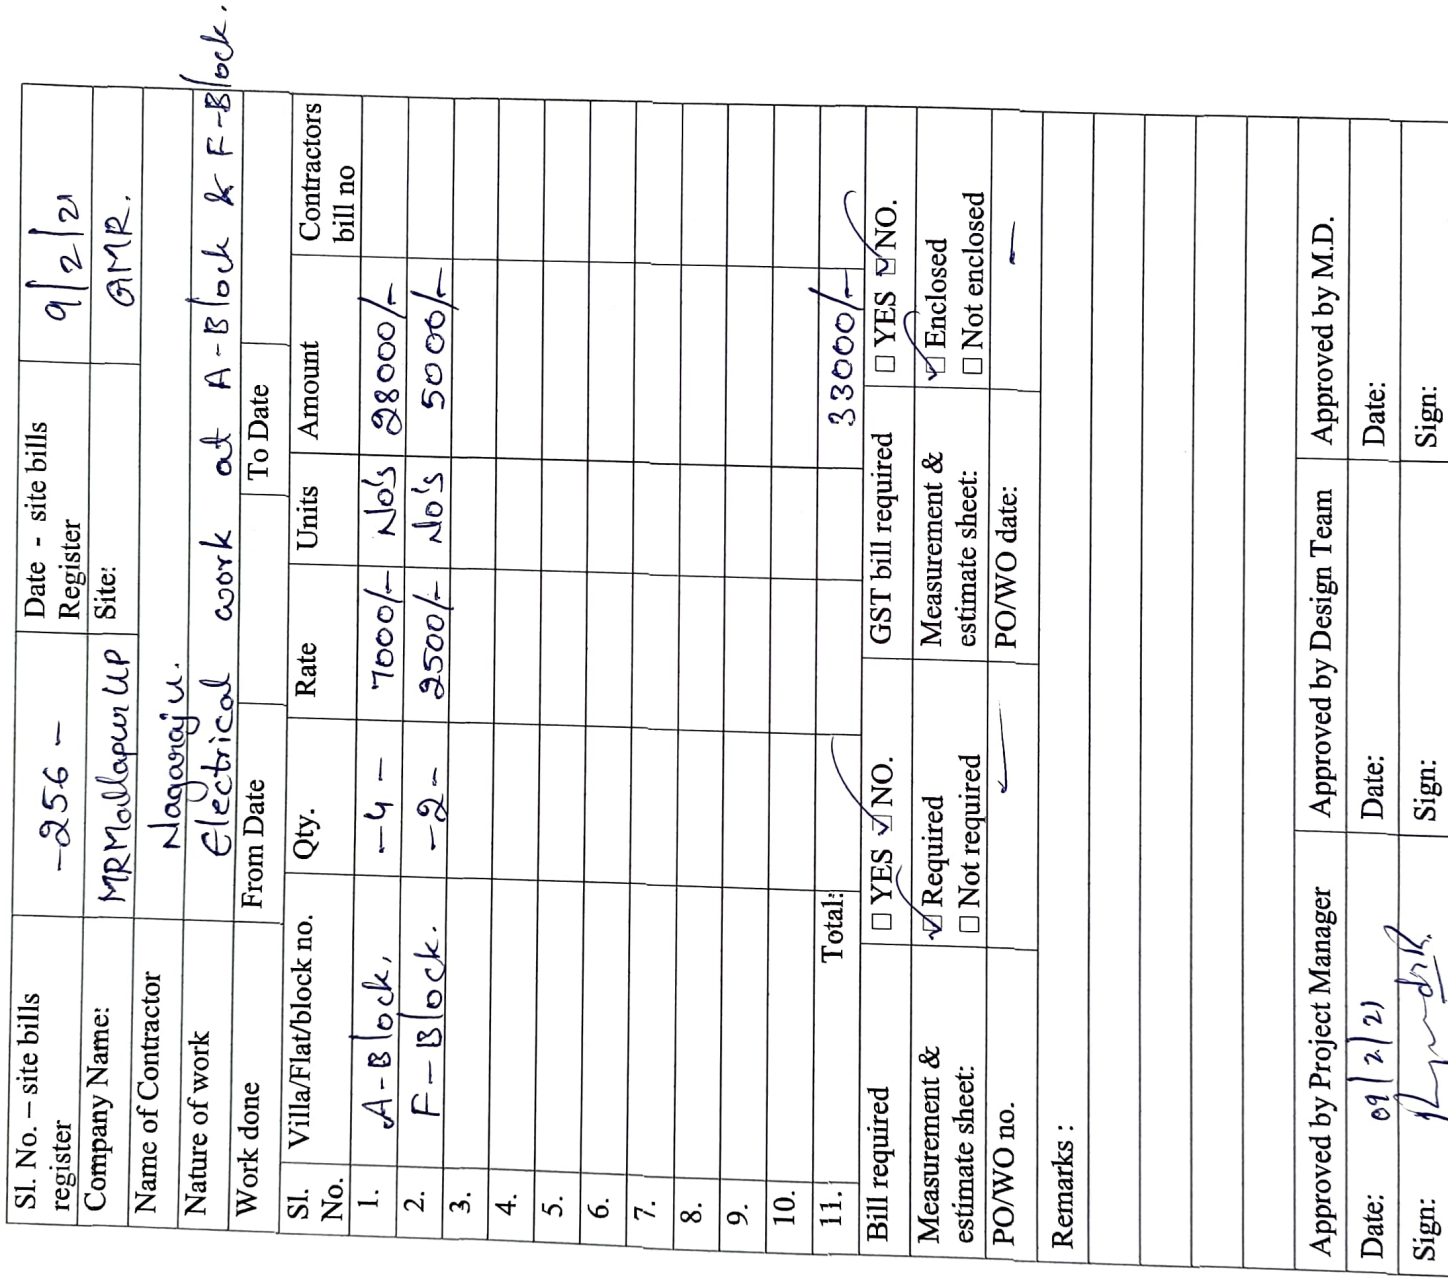 Sl. No. – site bills register -256- Date - site bills Register 9/2/21
Company Name: MRMallapur LLP Site: GMR.
Name of Contractor Nagaraju.
Nature of work Electrical work at A-Block & F-Block.
Work done From Date To Date
Sl. No. Villa/Flat/block no. Qty. Rate Units Amount Contractors bill no
1. A-Block, -4- 7000/- No's 28000/-
2. F-Block. -2- 2500/- No's 5000/-
3.
4.
5.
6.
7.
8.
9.
10.
11. Total: 33000/-
Bill required ☐ YES ☑ NO. GST bill required ☐ YES ☑ NO.
Measurement & estimate sheet: ☑ Required ☐ Not required Measurement & estimate sheet: ☑ Enclosed ☐ Not enclosed
PO/WO no. — PO/WO date: —
Remarks :
Approved by Project Manager Approved by Design Team Approved by M.D.
Date: 09/2/21 Date: Date:
Sign: Sign: Sign: